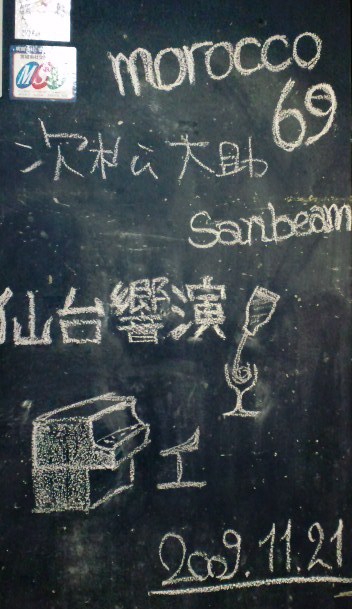 morocco
69
次松大助
sanbeam
仙台響演
2009.11.21